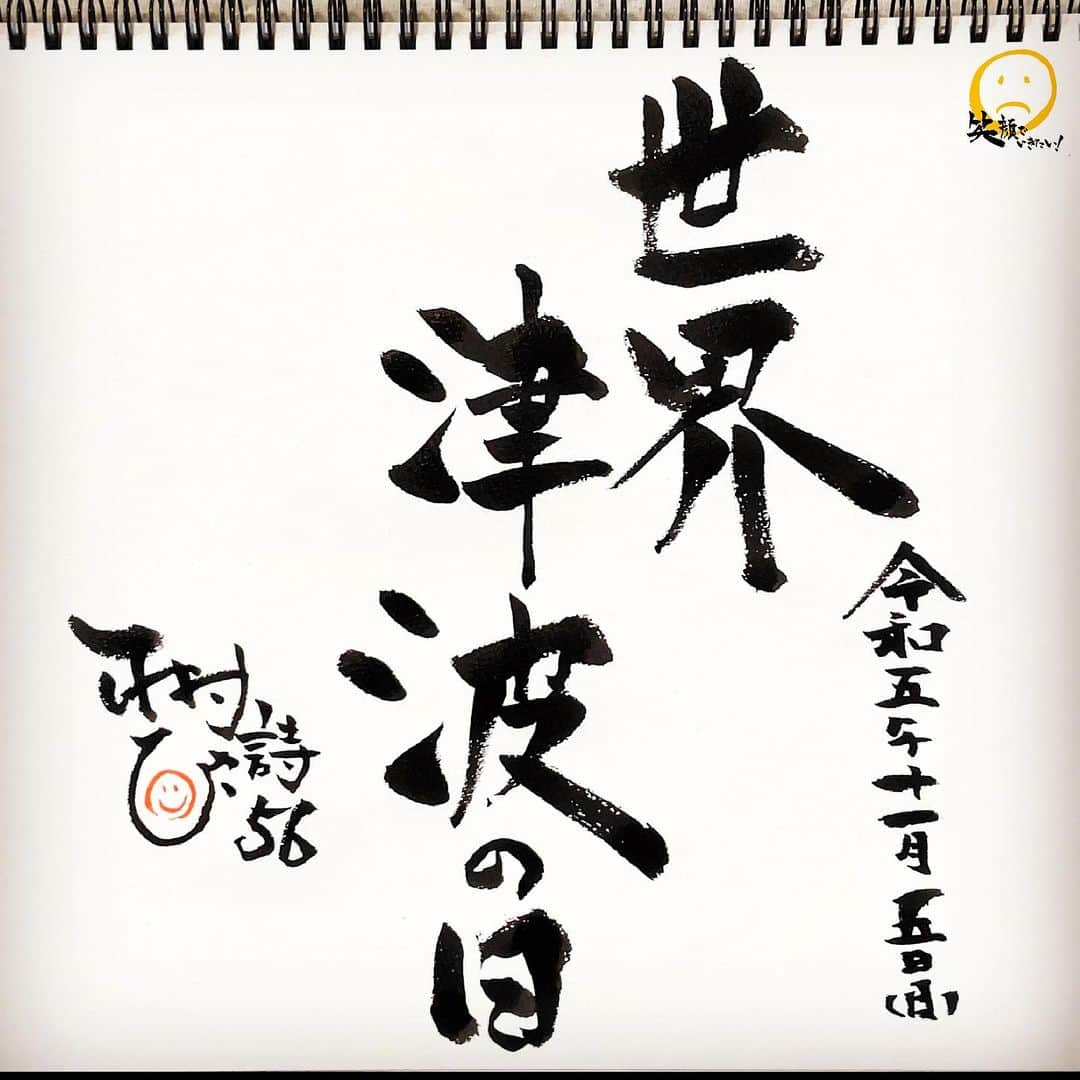 笑顔で
いきたい！
世界
津波の日
令和五年十一月五日(日)
村
ひさ
詩
56